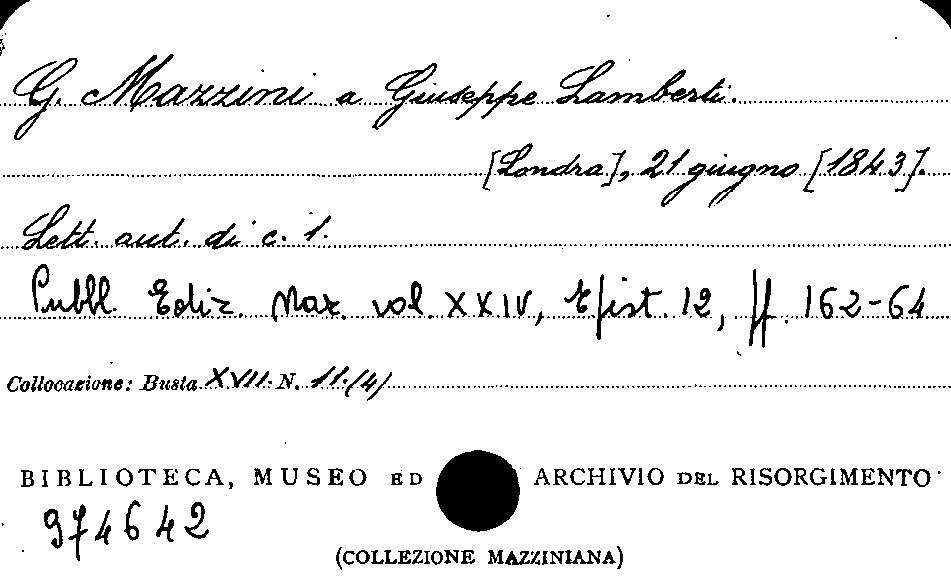 G. Mazzini a Giuseppe Lamberti.
[Londra], 21 giugno [1843].
Lett. aut. di c. 1.
Pubbl. Ediz. Naz. vol. XXIV, Epist. 12, pp. 162-64
Collocazione: Busta XVII N. 11.(4)
BIBLIOTECA, MUSEO ED ARCHIVIO DEL RISORGIMENTO
974642
(COLLEZIONE MAZZINIANA)